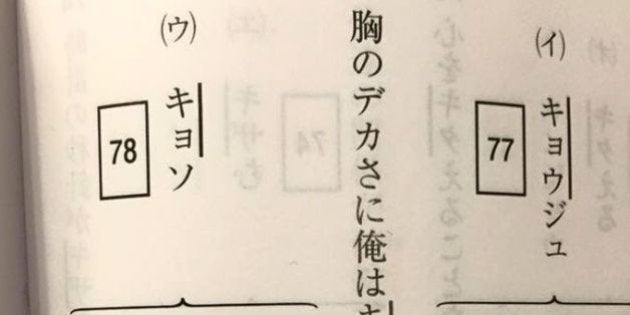 (イ)
キョウジュ
77
胸のデカさに俺は
(ウ)
キョソ
78